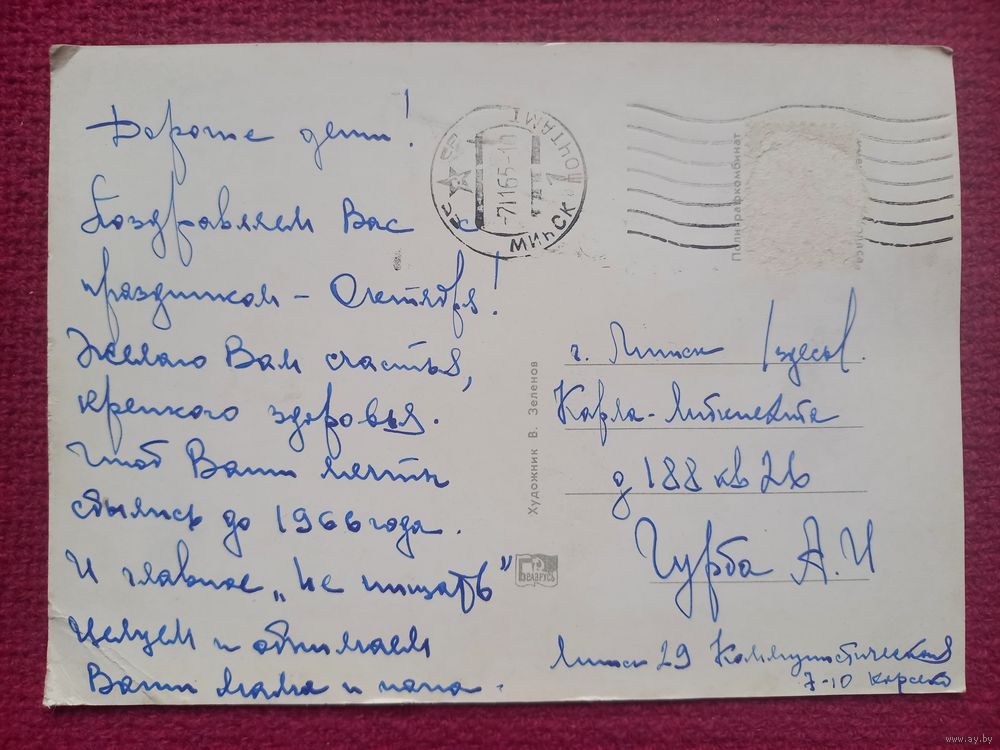 Дорогие дети!
Поздравляем Вас с
праздником - Октября!
Желаю Вам счастья,
крепкого здоровья.
Чтоб Ваши мечты
сбылись до 1966 года.
И главное „Не пищать"
Целуем и обнимаем
Ваши мама и папа.
МИНСК ПОЧТАМТ
-71165-1
Полиграфкомбинат
Художник В. Зеленов
БЕЛАРУСЬ
г. Минск (здесь).
Карла-Либкнехта
д 188 кв 26
Гурба А.И
Минск 29 Коммунистическая
7-10
www.ay.by